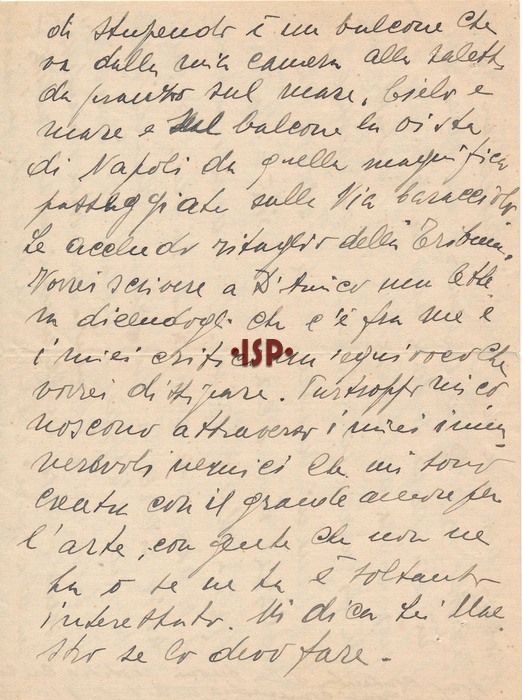 di stupendo è un balcone che
va dalla mia camera alla saletta
da pranzo sul mare. Cielo e
mare e sul balcone la vista
di Napoli da quella magnifica
passeggiata sulla Via Caracciolo
Le accludo ritaglio della Tribuna.
Vorrei scrivere a D'Amico una lette
ra dicendogli che c'è fra me e
i miei critici un equivoco che
vorrei dissipare. Purtroppo mi co
noscono attraverso i miei innu
merevoli nemici che mi sono
creata con il grande amore per
l'arte, con gente che non ne
ha o se ne ha è soltanto
interessato. Mi dica Lei Mae
stro se lo devo fare.
·ISP·